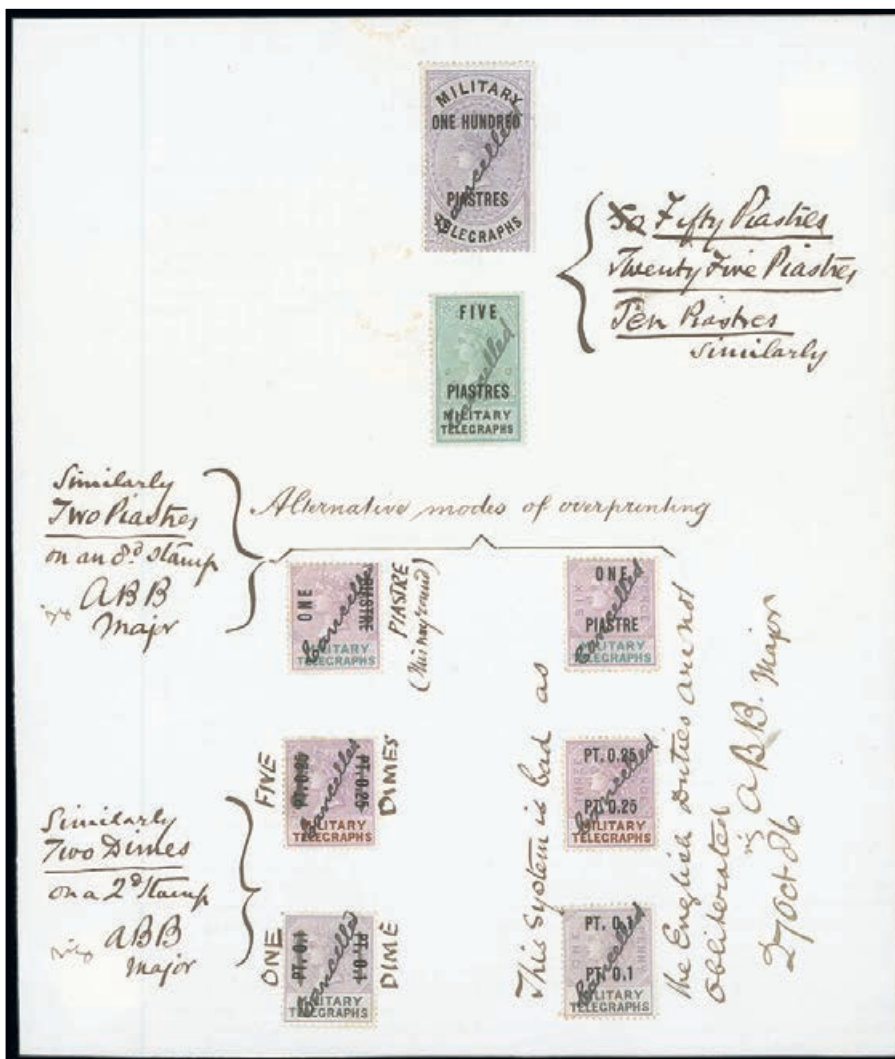 MILITARY
ONE HUNDRED
PIASTRES
TELEGRAPHS
Cancelled
Fifty Piastres
Twenty Five Piastres
Ten Piastres
Similarly
FIVE
PIASTRES
MILITARY
TELEGRAPHS
Cancelled
Similarly
Two Piastres
on an 8d stamp
ABB
Major
Alternative modes of overprinting
ONE
PIASTRE
MILITARY
TELEGRAPHS
Cancelled
PIASTRE
(This way round)
SIX
ONE
PIASTRE
MILITARY
TELEGRAPHS
Cancelled
FIVE
PT. 0.25
PT. 0.25
MILITARY
TELEGRAPHS
Cancelled
DIMES
THREE
PT. 0.25
PT. 0.25
MILITARY
TELEGRAPHS
Cancelled
Similarly
Two Dimes
on a 2d stamp
ABB
Major
ONE
PT. 0.1
PT. 0.1
MILITARY
TELEGRAPHS
Cancelled
DIME
PT. 0.1
PT. 0.1
MILITARY
TELEGRAPHS
Cancelled
This system is bad as
the English Duties are not
obliterated
ABB. Major
27 Oct 86